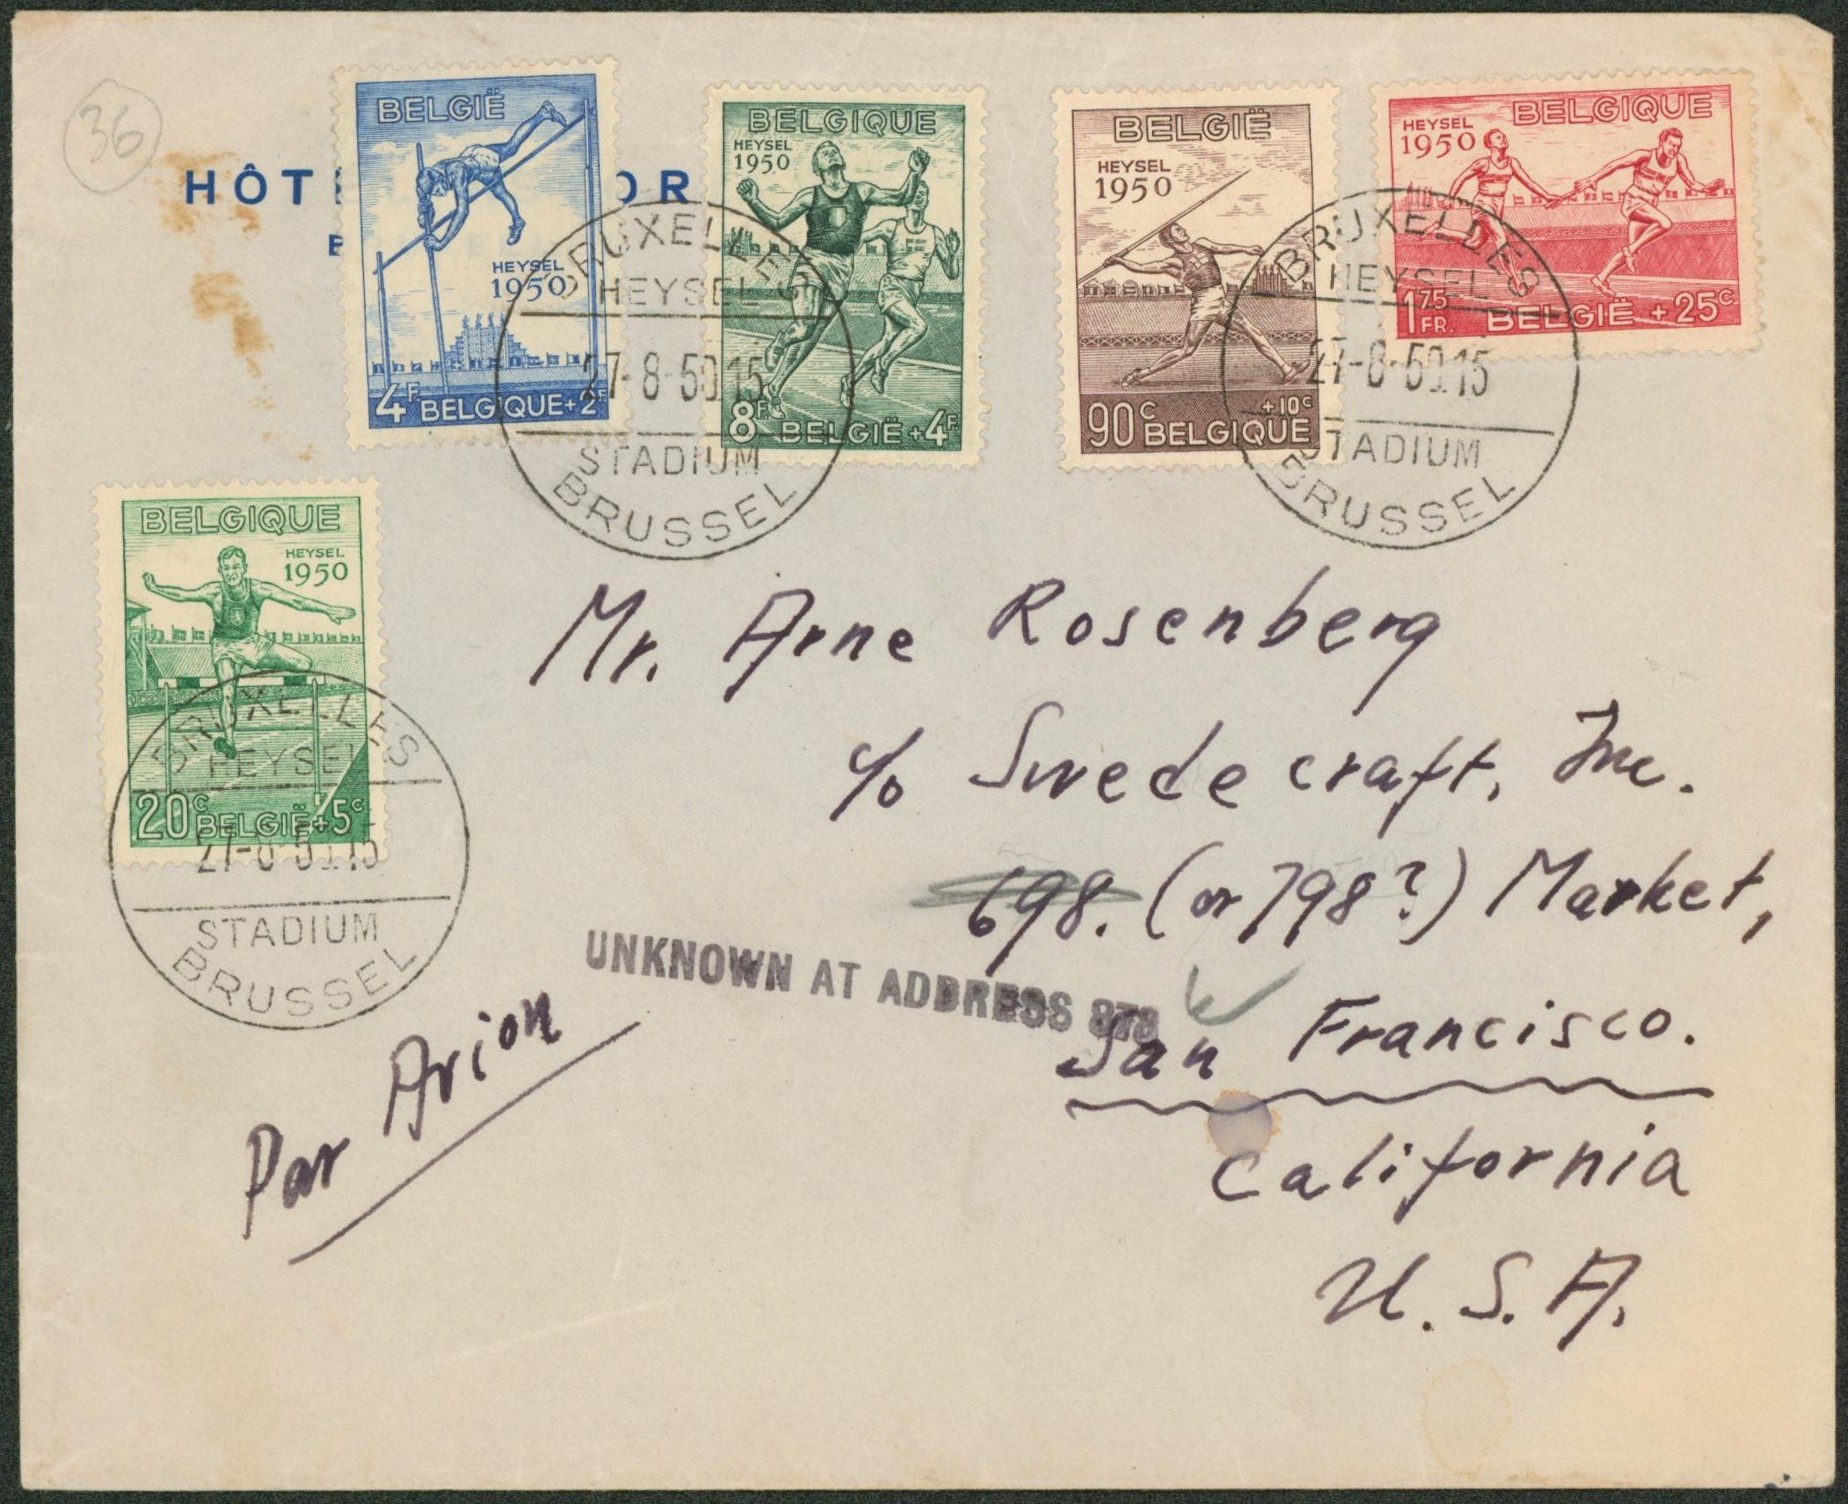 36
HÔT OR
BELGIË
HEYSEL
1950
4F BELGIQUE+2F
BELGIQUE
HEYSEL
1950
8F BELGIË+4F
BELGIË
HEYSEL
1950
90c +10c
BELGIQUE
HEYSEL
1950 BELGIQUE
1 75 FR. BELGIË +25c
BRUXELLES
HEYSEL
27-8-50 15
STADIUM
BRUSSEL
BRUXELLES
HEYSEL
27-8-50 15
STADIUM
BRUSSEL
BELGIQUE
HEYSEL
1950
20c BELGIË+5c
BRUXELLES
HEYSEL
27-8-50 15
STADIUM
BRUSSEL
Mr. Arne Rosenberg
c/o Swedecraft, Inc.
698. (or 798?) Market,
UNKNOWN AT ADDRESS
San Francisco.
California
U.S.A.
Par Avion